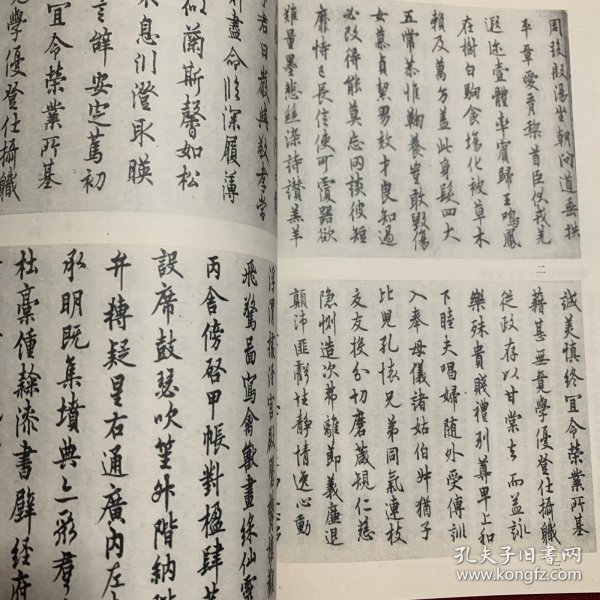 周發殷湯坐朝問道垂拱
平章愛育黎首臣伏戎羌
遐迩壹體率賓歸王鳴鳳
在樹白駒食場化被草木
賴及萬方盖此身髮四大
五常恭惟鞠養豈敢毀傷
女慕貞絜男效才良知過
必改得能莫忘罔談彼短
靡恃己長信使可覆器欲
難量墨悲絲染詩讚羔羊
二
誠美慎終宜令榮業所基
藉甚無竟學優登仕攝職
從政存以甘棠去而益詠
樂殊貴賤禮别尊卑上和
下睦夫唱婦随外受傅訓
入奉母儀諸姑伯叔猶子
比兒孔懷兄弟同氣連枝
交友投分切磨箴規仁慈
隐惻造次弗離節義廉退
顛沛匪虧性静情逸心動
君曰嚴與敬孝當
盡命臨深履薄
似蘭斯馨如松
不息川澄取暎
言辭安定篤初
宜令榮業所基
竟學優登仕攝職
浮渭據涇宮殿
飛驚圖寫禽獸畫綵仙靈
丙舍傍啓甲帳對楹肆
設席鼓瑟吹笙升階納
弁轉疑星右通廣内左
承明既集墳典亦聚群
杜稾鍾隸漆書壁經府
孔夫子旧书网
www.kongfz.com